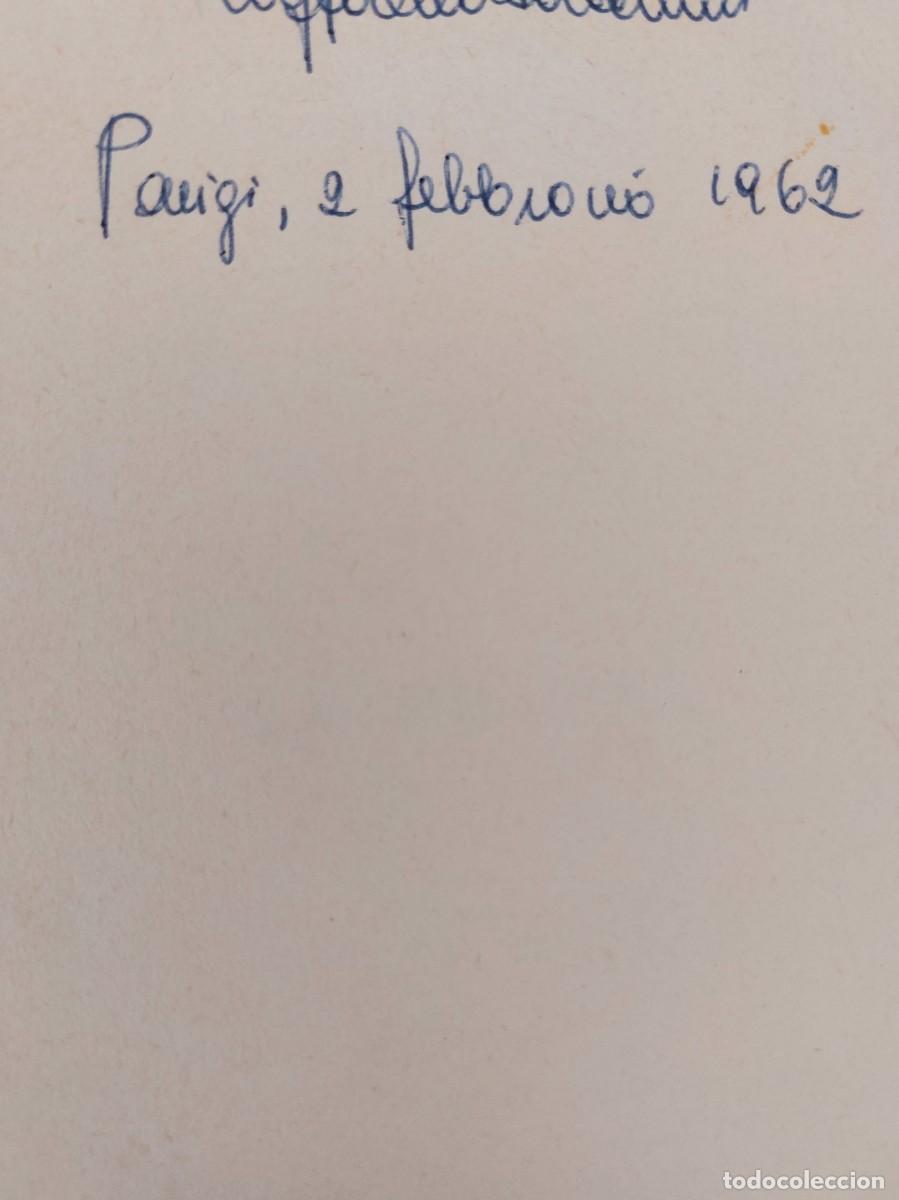 Parigi, 2 febbraio 1962
todocoleccion